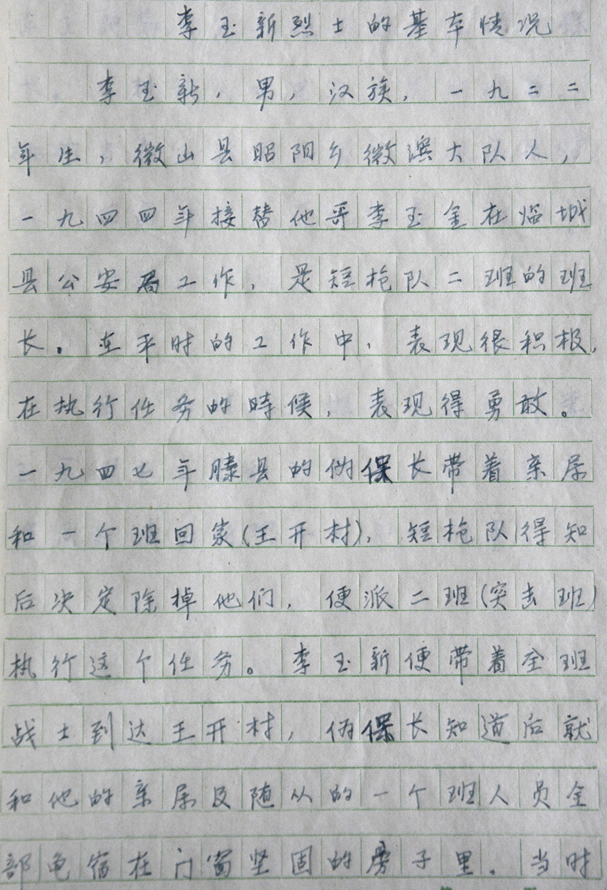 李玉新烈士的基本情况
李玉新，男，汉族，一九二二
年生，微山县昭阳乡微滨大队人，
一九四四年接替他哥李玉金在临城
县公安局工作，是短枪队二班的班
长。在平时的工作中，表现很积极，
在执行任务的時候，表现得勇敢。
一九四七年滕县的伪保长带着亲属
和一个班回家(王开村)，短枪队得知
后决定除掉他们，便派二班(突击班)
执行这个任务。李玉新便带着全班
战士到达王开村，伪保长知道后就
和他的亲属及随从的一个班人员全
部龟宿在门窗坚固的房子里。当时